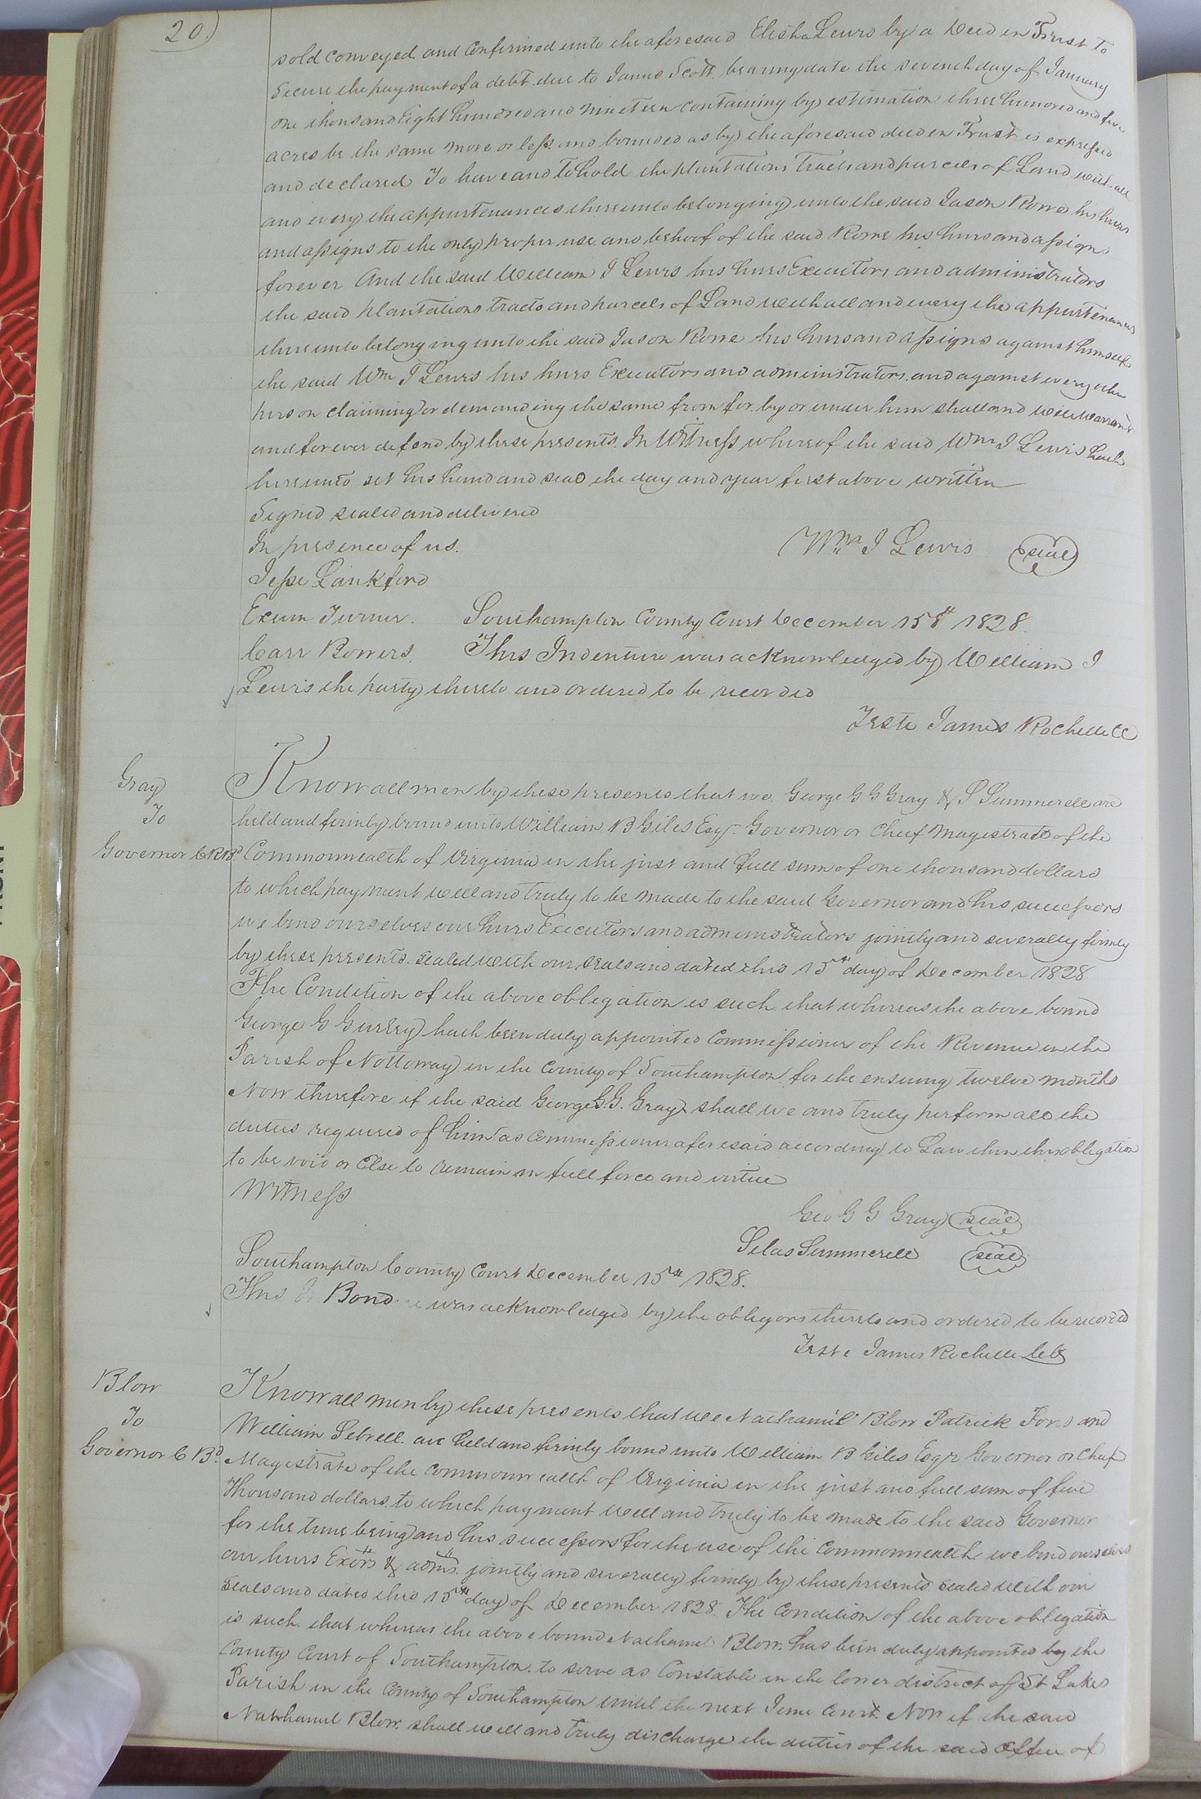 20.
sold conveyed and Confirmed unto the aforesaid Elisha Lewis by a Deed in Trust to
Secure the payment of a debt due to James Scott bearing date the seventh day of January
one thousand Eight hundred and nineteen containing by estimation three hundred and five
acres be the same more or less and bounded as by the aforesaid deed in Trust is expressed
and declared To have and to hold the plantations Tracts and parcels of Land with all
and every the appurtenances thereunto belonging unto the said Jason Rowe his heirs
and assigns to the only proper use and behoof of the said Rowe his heirs and assigns
forever And the said William I Lewis his heirs Executors and administrators
the said plantations tracts and parcels of Land with all and every the appurtenances
thereunto belonging unto the said Jason Rowe his heirs and assigns against himself
the said Wm I Lewis his heirs Executors and administrators and against every other
person claiming or demanding the same from for by or under him shall and will warrant
and forever defend by these presents In Witness whereof the said Wm I Lewis hath
hereunto set his hand and seal the day and year first above written
Signed sealed and delivered
In presence of us.
Wm I Lewis seal
Jesse Lankford
Exum Turner. Southampton County Court December 15th 1828.
Carr Bowers. This Indenture was acknowledged by William I
Lewis the party thereto and ordered to be recorded
Teste James Rochelle CC
Gray
To
Governor &c Bd
Know all men by these presents that we George G G Gray & S Summerell are
held and firmly bound unto William B Giles Esqr. Governor or Chief Magistrate of the
Commonwealth of Virginia in the just and full sum of one thousand dollars
to which payment well and truly to be made to the said Governor and his successors
we bind ourselves our heirs Executors and administrators jointly and severally firmly
by these presents. Sealed with our seals and dated this 15th day of December 1828
The Condition of the above obligation is such that whereas the above bound
George G Gurley hath been duly appointed Commissioner of the Revenue in the
Parish of Nottoway in the County of Southampton for the ensuing twelve months
Now therefore if the said George G.G. Gray shall we and truly perform all the
duties required of him as Commissioner aforesaid according to Law then this obligation
to be void or Else to remain in full force and virtue
Witness
Geo G G Gray seal
Silas Summerell seal
Southampton County Court December 15th 1828.
This Bond was acknowledged by the obligors thereto and ordered to be recorded
Teste James Rochelle CC
Blow
To
Governor &c Bd
Know all men by these presents that we Nathaniel Blow Patrick Ford and
William Sebrell are held and firmly bound unto William B Giles Esqr Governor or Chief
Magistrate of the commonwealth of Virginia in the just and full sum of five
Thousand dollars to which payment well and truly to be made to the said Governor
for the time being and his successors for the use of the commonwealth we bind ourselves
our heirs Exors & adms. jointly and severally firmly by these presents sealed with our
seals and dated this 15th day of December 1828. The Condition of the above obligation
is such that whereas the above bound Nathaniel Blow has been duly appointed by the
County Court of Southampton to serve as Constable in the lower district of St Lukes
Parish in the County of Southampton until the next June Court. Now if the said
Nathaniel Blow shall well and truly discharge the duties of the said Office of